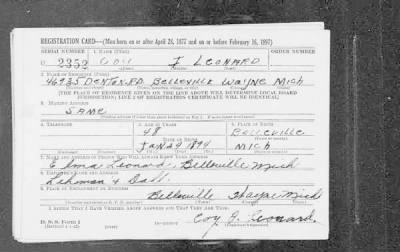 REGISTRATION CARD—(Men born on or after April 28, 1877 and on or before February 16, 1897)
SERIAL NUMBER 1. NAME (Print) ORDER NUMBER
U 2352 COY J LEONARD
2. PLACE OF RESIDENCE (Print)
46935 DENTON RD. BELLEVILLE WAYNE MICH
[THE PLACE OF RESIDENCE GIVEN ON THE LINE ABOVE WILL DETERMINE LOCAL BOARD
JURISDICTION; LINE 2 OF REGISTRATION CERTIFICATE WILL BE IDENTICAL]
3. MAILING ADDRESS
SAME
4. TELEPHONE 5. AGE IN YEARS 6. PLACE OF BIRTH
48 BELLEVILLE
DATE OF BIRTH
JAN 29 1894 MICH
7. NAME AND ADDRESS OF PERSON WHO WILL ALWAYS KNOW YOUR ADDRESS
Leonard, Belleville Mich
8. EMPLOYER'S NAME AND ADDRESS
Lehman &
9. PLACE OF EMPLOYMENT OR BUSINESS
Belleville Wayne Mich
I AFFIRM THAT I HAVE VERIFIED ABOVE ANSWERS AND THAT THEY ARE TRUE.
D. S. S. Form 1
Coy J. Leonard